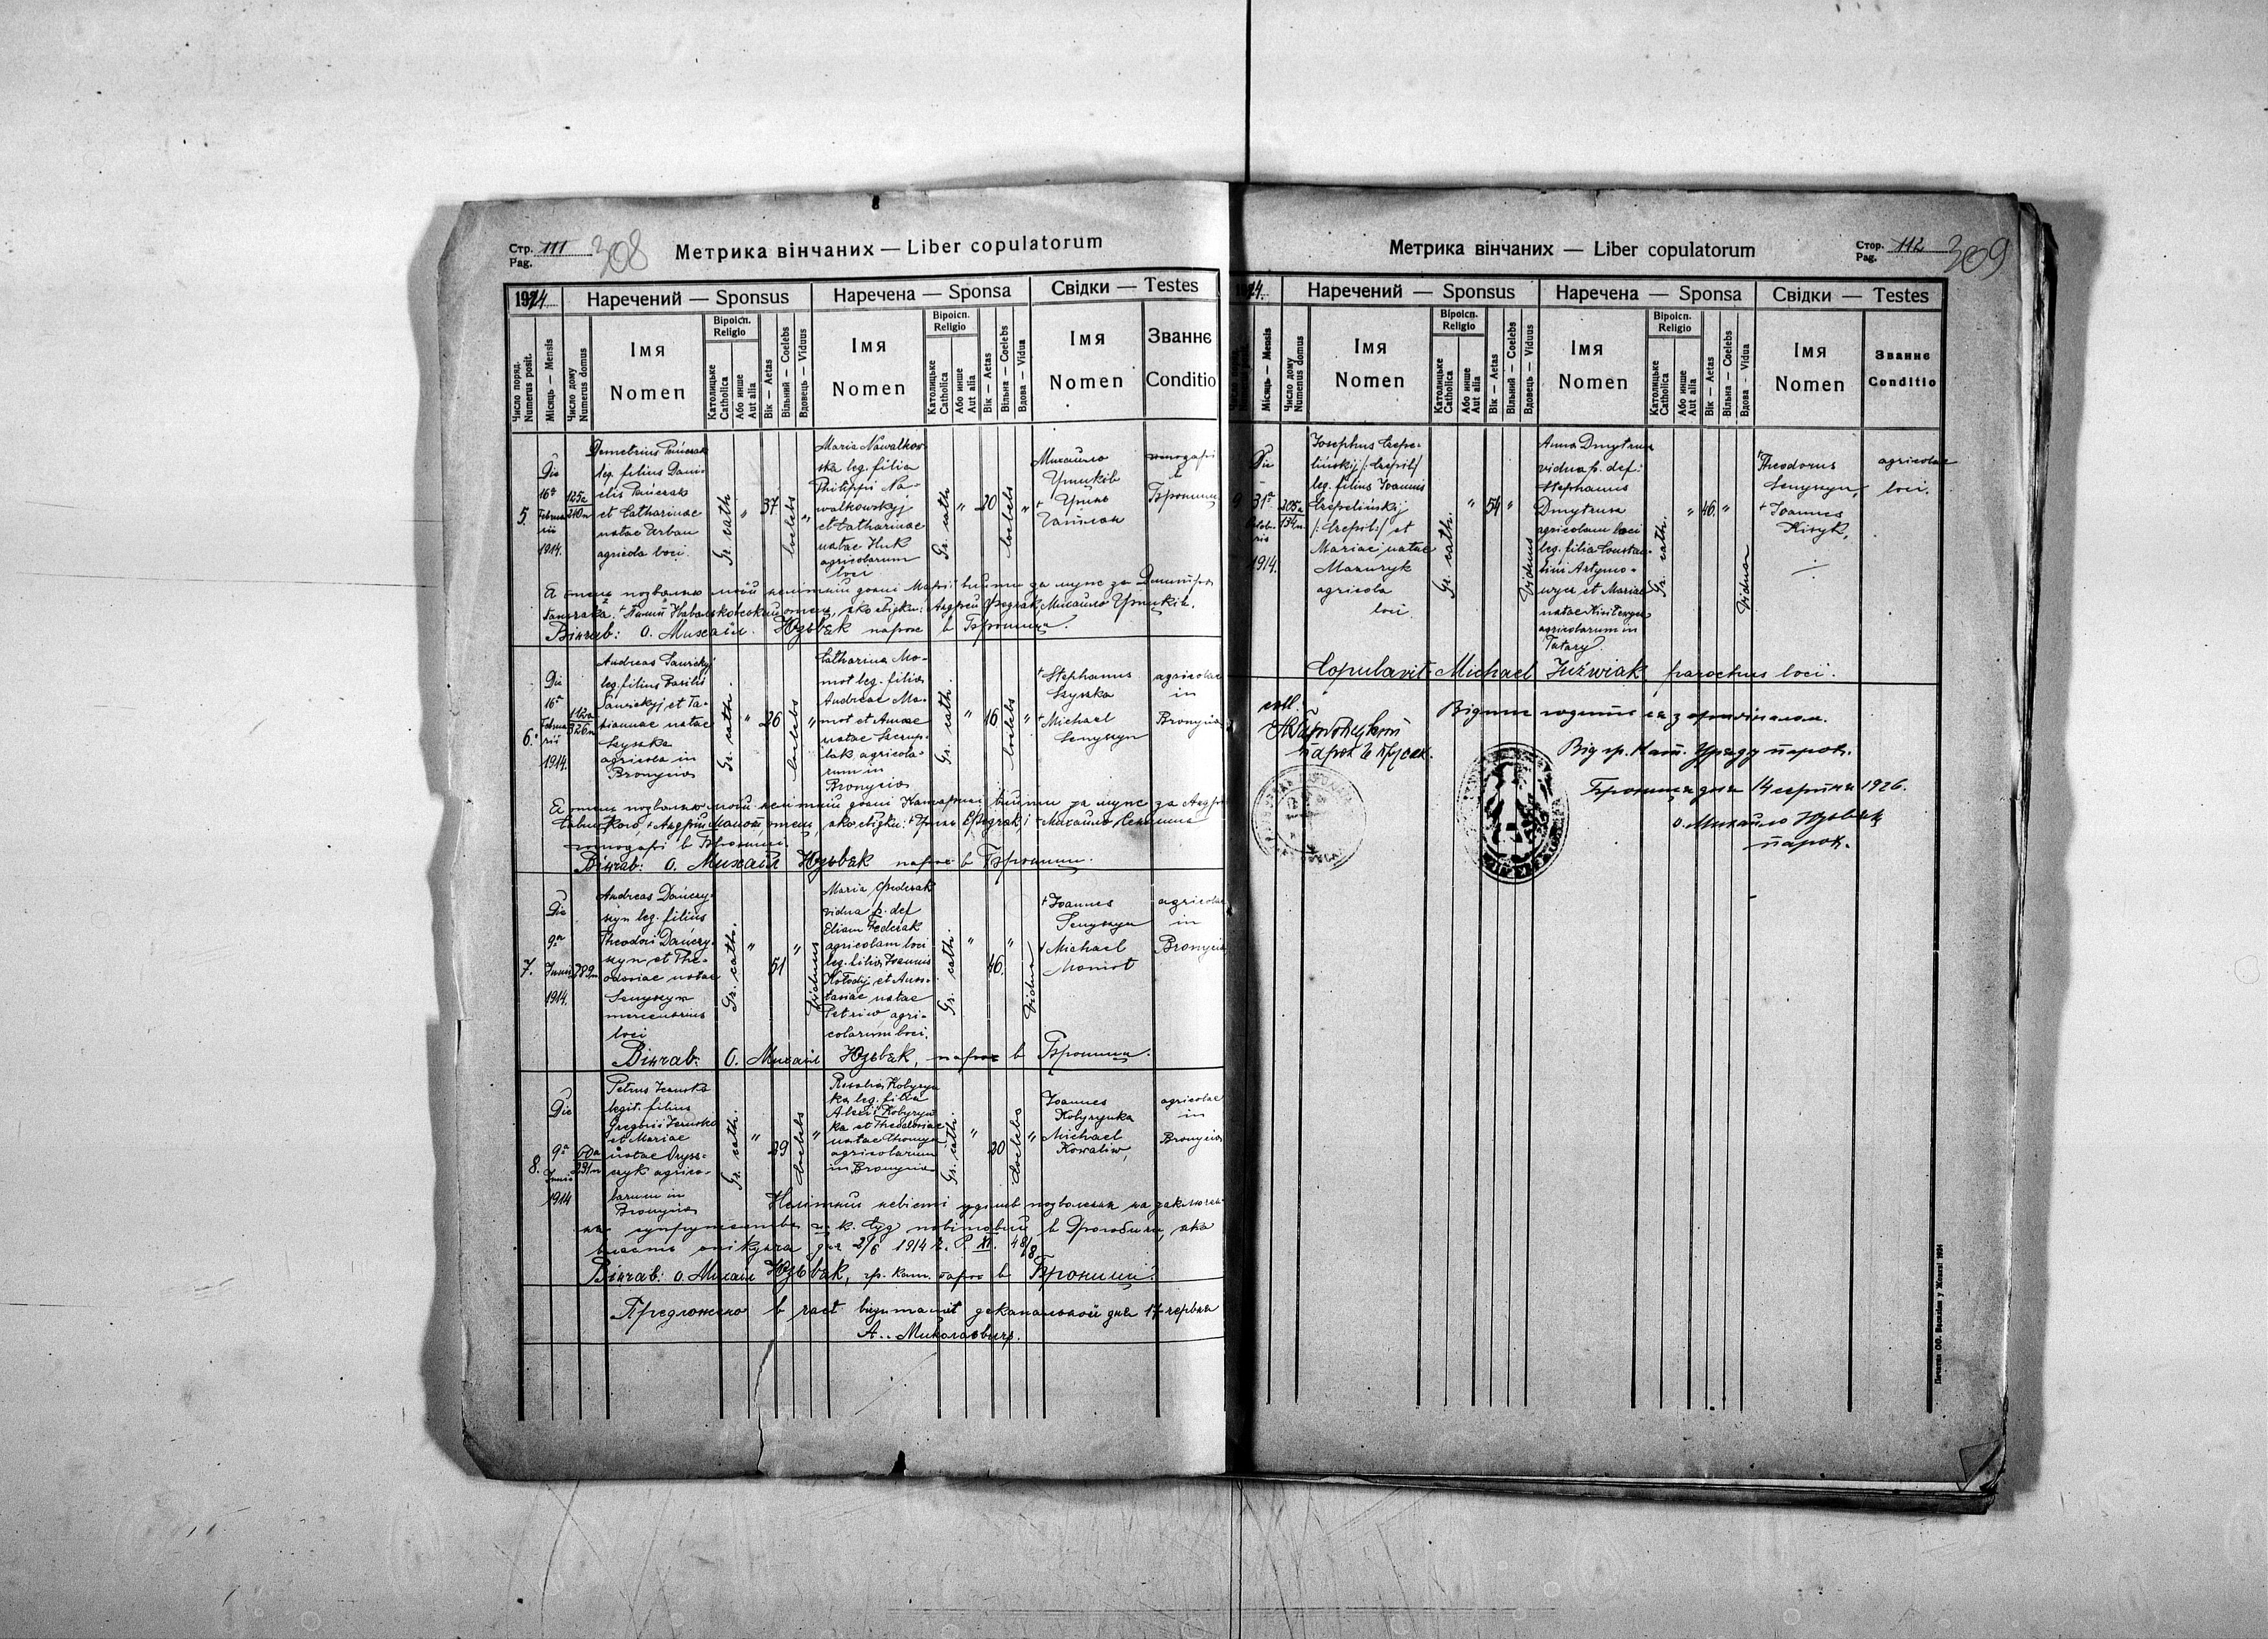 Стр. 111 308
Pag.
Метрика вінчаних — Liber copulatorum
1914
Наречений — Sponsus
Наречена — Sponsa
Свідки — Testes
Число поряд.
Numerus posit.
Місяць — Mensis
Число дому
Numerus domus
Імя
Nomen
Віроісп.
Religio
Католицьке
Catholica
Або инше
Aut alia
Вік — Aetas
Вільний — Coelebs
Вдовець — Viduus
Імя
Nomen
Віроісп.
Religio
Католицьке
Catholica
Або инше
Aut alia
Вік — Aetas
Вільна — Coelebs
Вдова — Vidua
Імя
Nomen
Званнє
Conditio
5.
Die
16ª
Februa
rii
1914.
125a
210n
Demetrius
leg. filius Dani-
elis
et Catharinae
natae Urban
agricola loci.
Gr. cath
"
37
coelebs
"
Maria Nawalkow
ska leg. filia
Philippi Na-
walkowskyj
et Catharinae
natae Huk
agricolarum
loci
Gr. cath
"
20
coelebs
"
Михайло
Уриків
+ Гринь
господарі
в
Брониця
Я отець позваляю моїй нелітній доньці Марії вийти за муж за Дмитра
отець, яко свідки: Андрей Федчак, Михайло Уриків.
Вінчав: О. Михаил Юзьвяк парох в Брониця.
6.
Die
16ª
Februa
rii
1914.
112a
326n
Andreas
leg. filius Basilii
et Ta-
tiannae natae
Szyszka
agricola in
Bronycia
Gr. cath.
"
26
coelebs
"
Catharina Mo-
mot leg. filia
Andreae Mo-
mot et Annae
natae
agricola-
rum in
Bronycia
Gr. cath.
"
16
coelebs
"
+ Stephanus
Szyszka
+ Michael
Senyszyn
agricolae
in
Bronycia
Я отець позваляю моїй нелітній доньці Катарині вийти за муж за Андрія
Андрій Момот, отець, яко свідки: + Гринь Федчак, і + Михайло Сенишин
господарі в Брониці.
Вінчав: О. Михаил Юзьвяк парох в Брониця.
7.
Die
9ª
Junii
1914.
289n
Andreas Dańczy-
szyn leg. filius
Theodori Dańczy-
szyn et The-
odosiae natae
Senyszyn
mercenarius
loci
Gr. cath.
"
51
"
Viduus
Maria Fedczak
vidua p. def
Eliam Fedczak
agricolam loci
leg. filia Joannis
Kołodij et Anas-
tasiae natae
Petriw agri-
colarum loci.
Gr. cath.
"
46
"
Vidua
+ Joannes
Senyszyn
+ Michael
Momot
agricolae
in
Bronycia
Вінчав: О. Михаил Юзьвяк, парох в Брониця.
8.
Die
9ª
Junii
1914
60a
291n
Petrus
legit. filius
Gregorii
et Mariae
natae
agrico-
larum in
Bronycia
Gr. cath.
"
29
coelebs
"
Rosalia Kobyryn
ka leg. filia
Alexii Kobyryn
ka et Theodosiae
natae
agricolarum
in Bronycia
Gr. cath.
"
20
coelebs
"
Joannes
Kobyrynka
Michael
Kowaliw,
agricolae
in
Bronycia
Нелітній невісті уділив позволеня на заключен-
нє супружества ц. к. Суд повітовий в Дрогобичи, яко
власть опікунча дня 2/6 1914 Р. XI. 48/8
Вінчав: о. Михаил Юзьвяк, гр. кат. парох в Брониці.
Предложено в часі візитації деканальної дня 17 червня
А. Миколаєвич.
Метрика вінчаних — Liber copulatorum
Стор. 112 309
Pag.
1914.
Наречений — Sponsus
Наречена — Sponsa
Свідки — Testes
Місяць — Mensis
Число дому
Numerus domus
Імя
Nomen
Віроісп.
Religio
Католицьке
Catholica
Або инше
Aut alia
Вік — Aetas
Вільний — Coelebs
Вдовець — Viduus
Імя
Nomen
Віроісп.
Religio
Католицьке
Catholica
Або инше
Aut alia
Вік — Aetas
Вільна — Coelebs
Вдова — Vidua
Імя
Nomen
Званнє
Conditio
9
Die
31ª
Octob-
ris
1914.
205a
134n
Josephus Czepe-
linskij /: Czepil:/
leg. filius Joannis
Czepelinskij
/: Czepil:/ et
Mariae natae
Mazuryk
agricola
loci
Gr. cath.
"
54
"
Viduus
Anna Dmytrus
vidua p. def:
Stephanus
Dmytrus
agricolam loci
leg. filia Constan-
tini Artymo-
wycz et Mariae
natae
agricolarum in
Tatary
Gr. cath.
"
46.
"
Vidua
+ Theodorus
Senyszyn,
+ Joannes
Kiryk,
agricolae
loci.
Copulavit: Michael Juźwiak parochus loci.
coll.
парох
Відпис годить ся з оригіналом.
Від гр. кат. Уряду парох.
Брониця дня 14 серпня 1926.
о. Михайло Юзьвяк
парох.
Печатня ОО. Василіян у Жовкві 1924